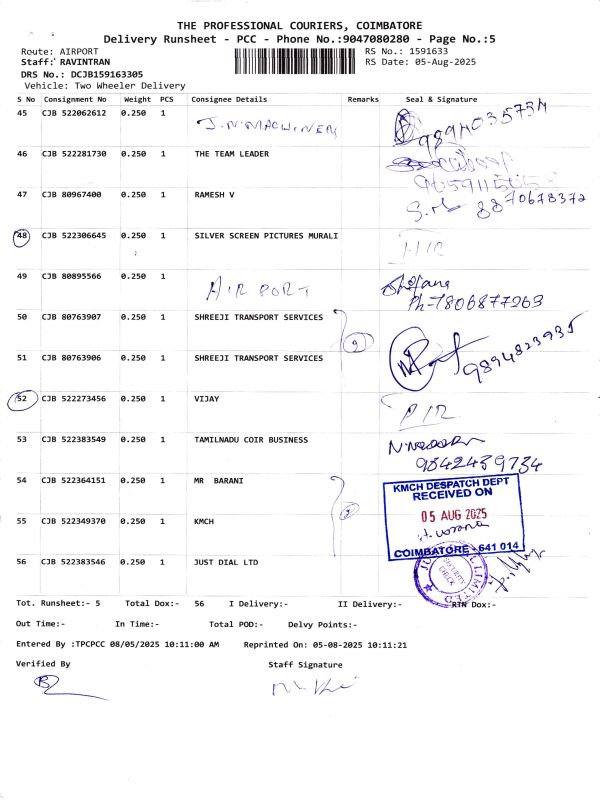 THE PROFESSIONAL COURIERS, COIMBATORE
Delivery Runsheet - PCC - Phone No.:9047080280 - Page No.:5
Route: AIRPORT RS No.: 1591633
Staff: RAVINTRAN RS Date: 05-Aug-2025
DRS No.: DCJB159163305
Vehicle: Two Wheeler Delivery
S No Consignment No Weight PCS Consignee Details Remarks Seal & Signature
45 CJB 522062612 0.250 1 J.N.MACHINERY 9894035734
46 CJB 522281730 0.250 1 THE TEAM LEADER
47 CJB 80967400 0.250 1 RAMESH V 8870678372
48 CJB 522306645 0.250 1 SILVER SCREEN PICTURES MURALI
49 CJB 80895566 0.250 1 AIRPORT Ph-7806877263
50 CJB 80763907 0.250 1 SHREEJI TRANSPORT SERVICES
51 CJB 80763906 0.250 1 SHREEJI TRANSPORT SERVICES 9894823935
52 CJB 522273456 0.250 1 VIJAY
53 CJB 522383549 0.250 1 TAMILNADU COIR BUSINESS 9842439734
54 CJB 522364151 0.250 1 MR BARANI
KMCH DESPATCH DEPT
RECEIVED ON
05 AUG 2025
55 CJB 522349370 0.250 1 KMCH
COIMBATORE - 641 014
56 CJB 522383546 0.250 1 JUST DIAL LTD
SECURITY CHECK
Tot. Runsheet:- 5 Total Dox:- 56 I Delivery:- II Delivery:- RTN Dox:-
Out Time:- In Time:- Total POD:- Delvy Points:-
Entered By :TPCPCC 08/05/2025 10:11:00 AM Reprinted On: 05-08-2025 10:11:21
Verified By Staff Signature